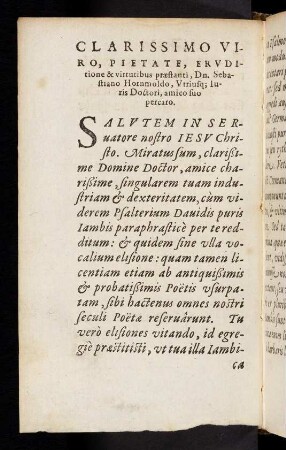 CLARISSIMO VI
RO, PIETATE, ERVDI
tione & virtutibus præstanti, Dn. Seba-
stiano Hornmoldo, Vtriusq; Iu-
ris Doctori, amico suo
percaro.
SALVTEM IN SER
uatore nostro IESV Chri-
sto. Miratus sum, clarißi-
me Domine Doctor, amice cha-
rißime, singularem tuam indu-
striam & dexteritatem, cùm vi-
derem Psalterium Dauidis puris
Iambis paraphrasticè per te red-
ditum: & quidem sine vlla vo-
calium elisione: quam tamen li-
centiam etiam ab antiquißimis
& probatißimis Poëtis vsurpa-
tam, sibi hactenus omnes nostri
seculi Poëtæ reseruârunt. Tu
verò elisiones vitando, id egre-
giè præstitisti, vt tua illa Iambi-
ca